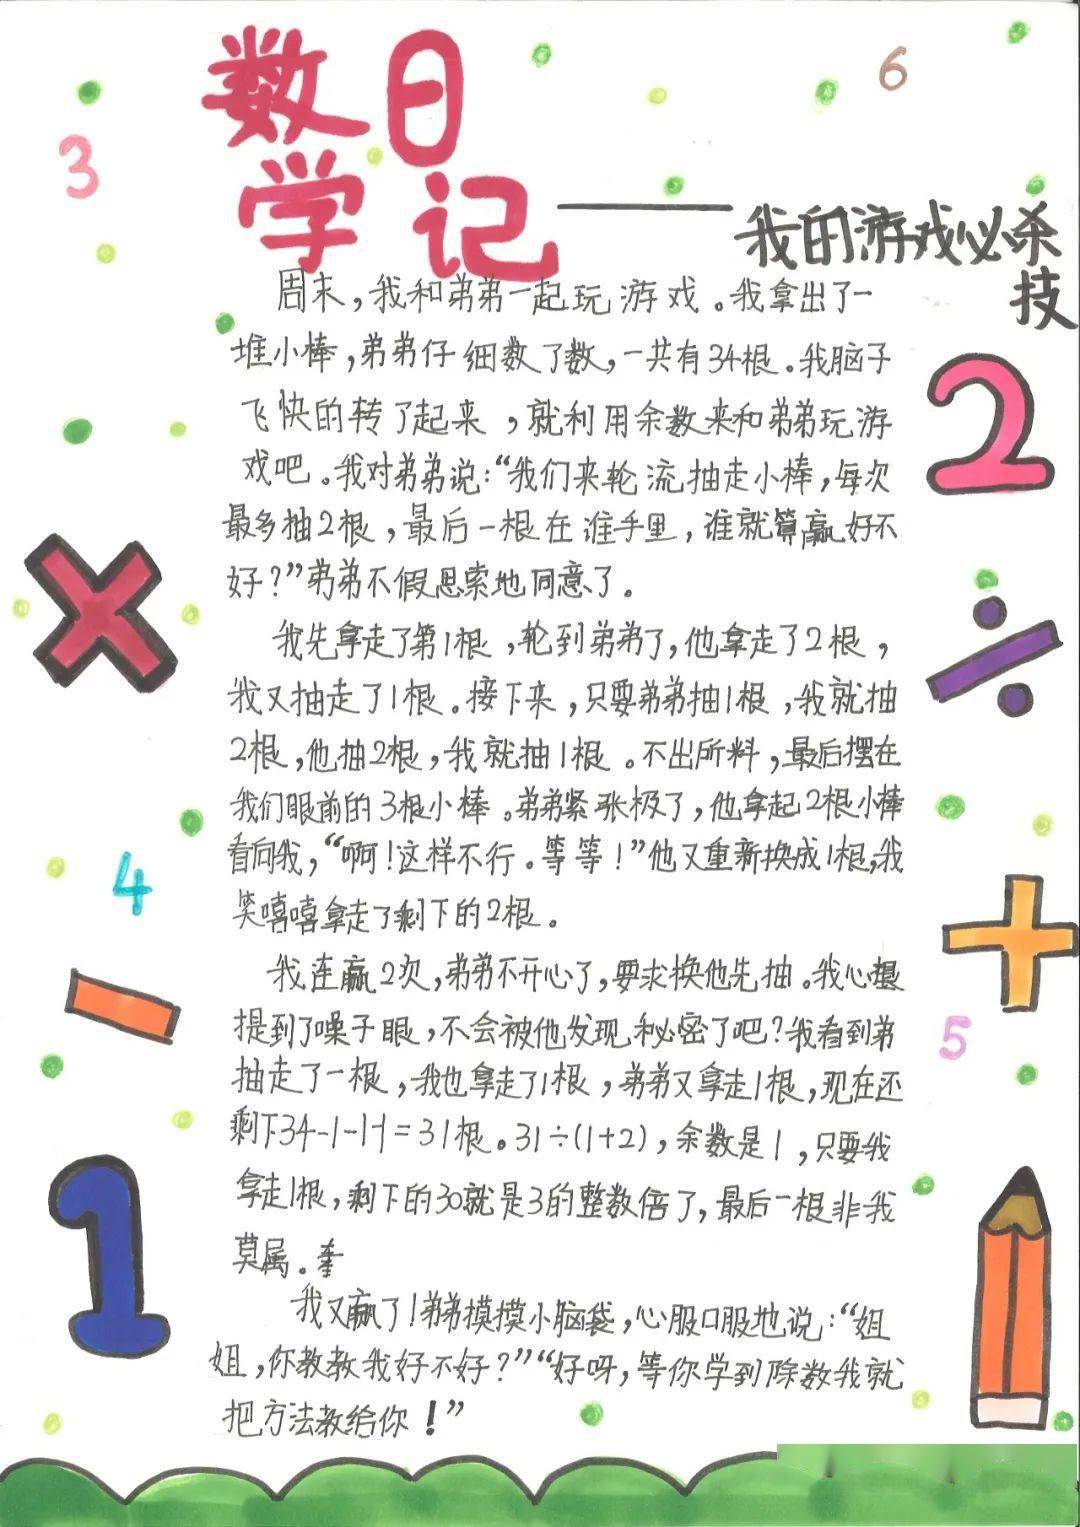 数学日记
——我的游戏必杀技
周末，我和弟弟一起玩游戏。我拿出了一
堆小棒，弟弟仔细数了数，一共有34根。我脑子
飞快的转了起来，就利用余数来和弟弟玩游
戏吧。我对弟弟说：“我们来轮流抽走小棒，每次
最多抽2根，最后一根在谁手里，谁就算赢好不
好？”弟弟不假思索地同意了。
我先拿走了第1根，轮到弟弟了，他拿走了2根，
我又抽走了1根。接下来，只要弟弟抽1根，我就抽
2根，他抽2根，我就抽1根。不出所料，最后摆在
我们眼前的3根小棒。弟弟紧张极了，他拿起2根小棒
看向我，“啊！这样不行。等等！”他又重新换成1根，我
笑嘻嘻拿走了剩下的2根。
我连赢2次，弟弟不开心了，要求换他先抽。我心想
提到了嗓子眼，不会被他发现秘密了吧？我看到弟
抽走了一根，我也拿走了1根，弟弟又拿走1根，现在还
剩下34-1-1-1=31根。31÷(1+2)，余数是1，只要我
拿走1根，剩下的30就是3的整数倍了，最后一根非我
莫属。
我又赢了！弟弟摸摸小脑袋，心服口服地说：“姐
姐，你教教我好不好？”“好呀，等你学到除数我就
把方法教给你！”
3
6
2
×
÷
4
+
-
5
1